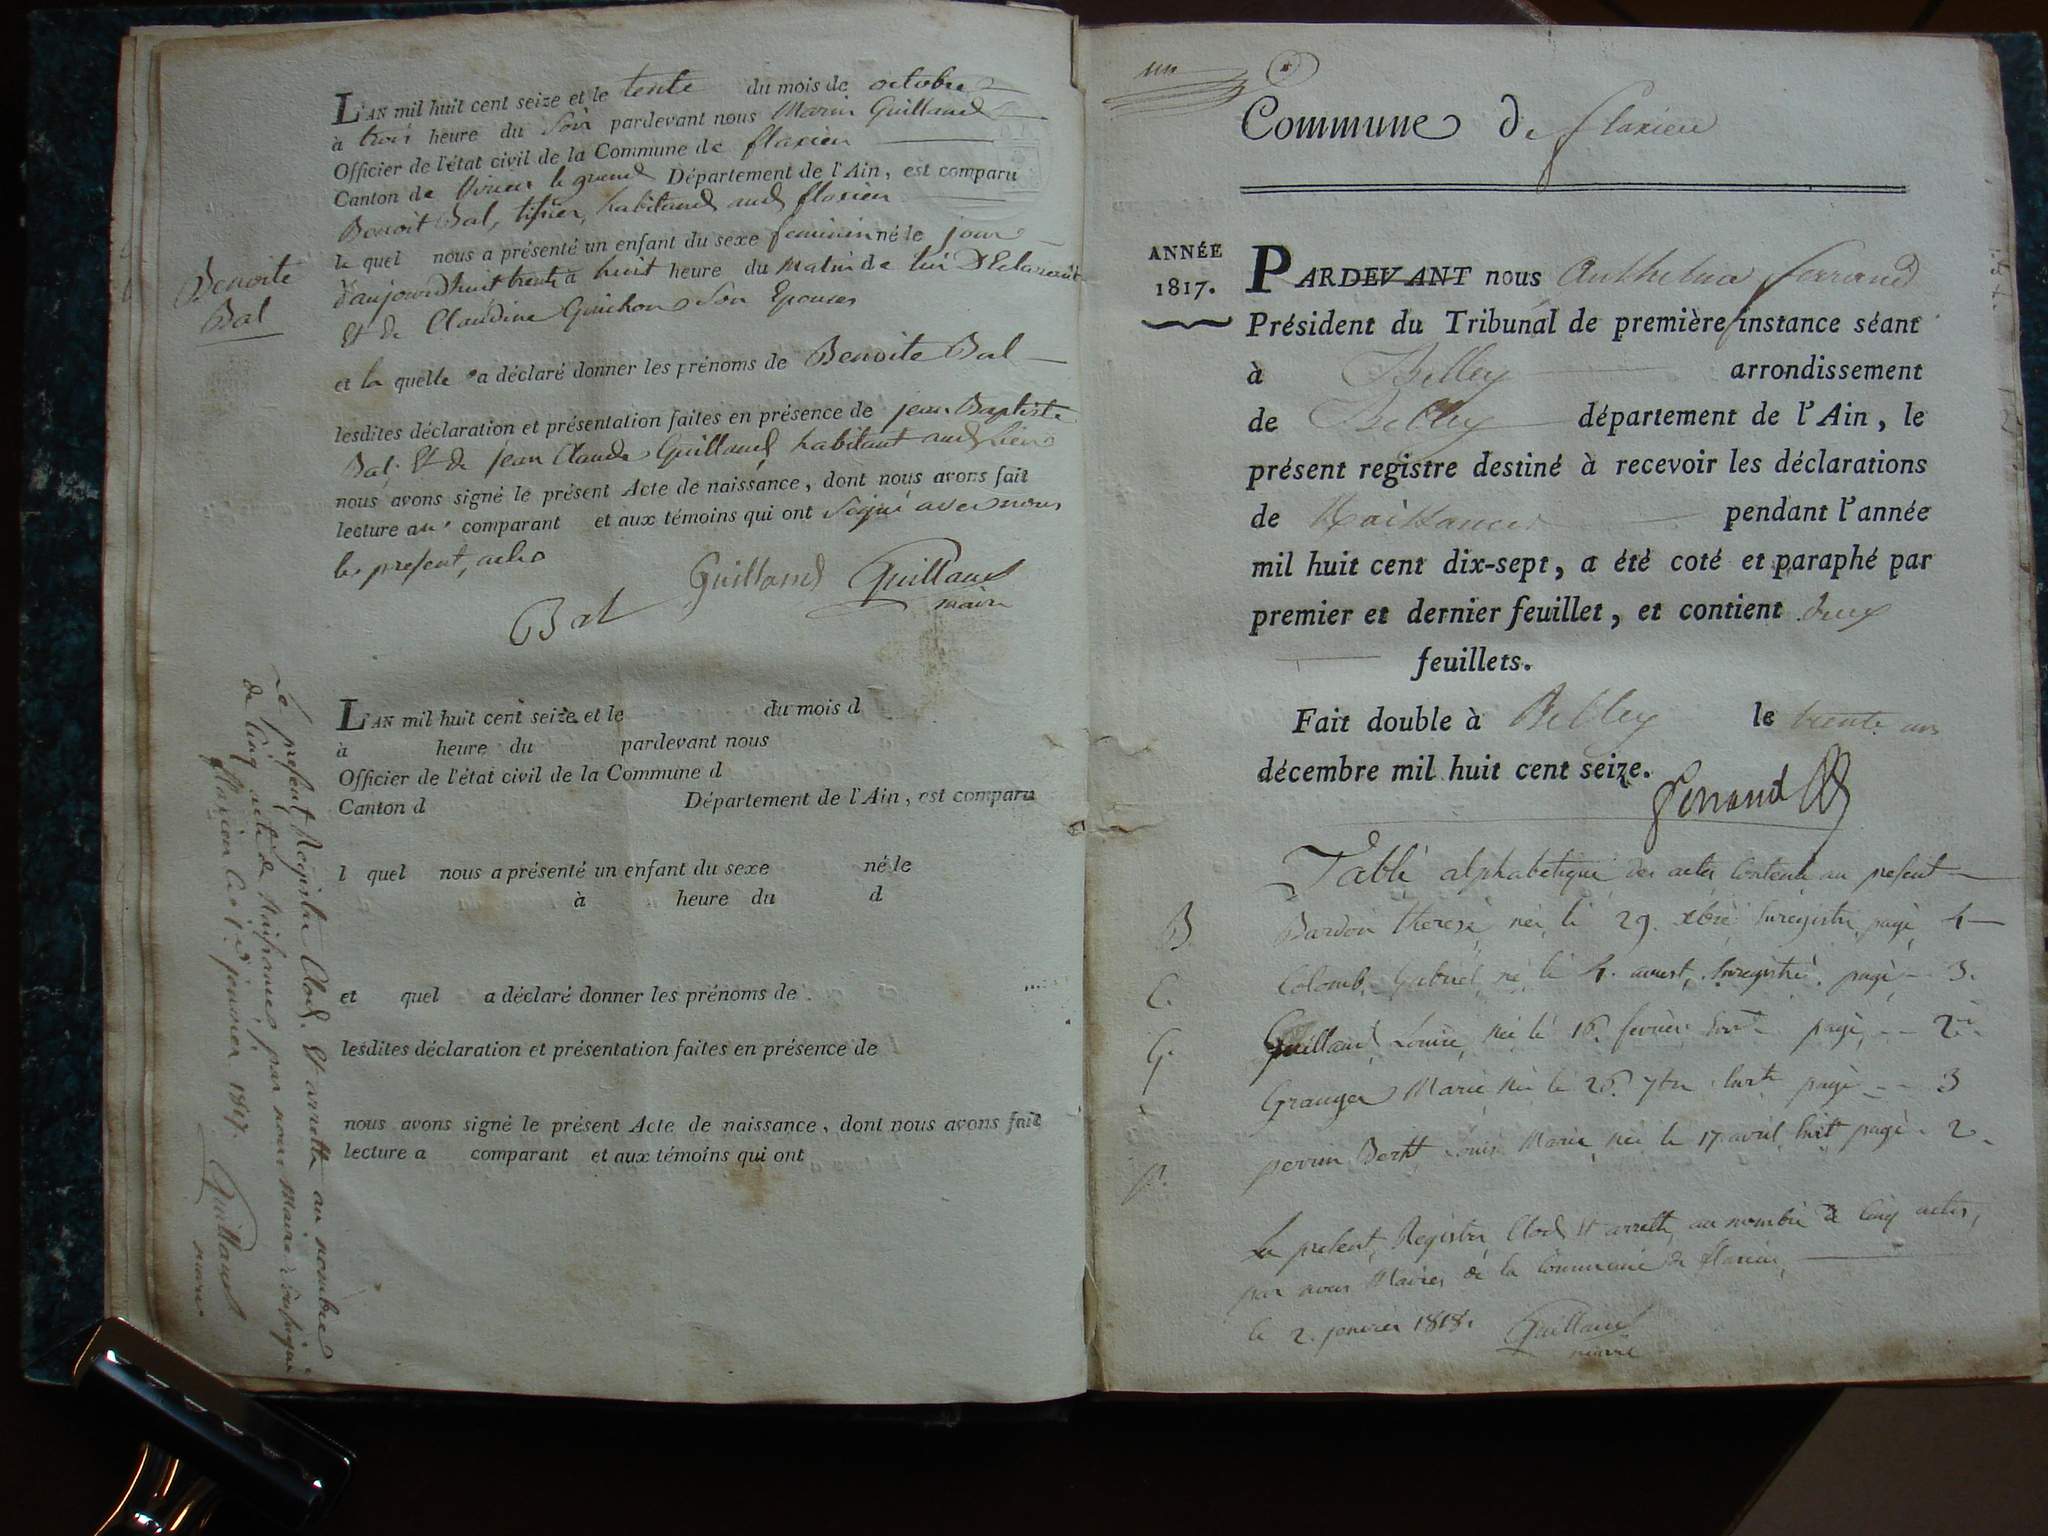 Benoite
Bal
L'AN mil huit cent seize et le tente du mois de octobre
à trois heure du Soir pardevant nous Marin Guilland
Officier de l'état civil de la Commune de flaxieu
Canton de Virieu le grand Département de l'Ain, est comparu
Benoit Bal, tissier, habitand aud flaxieu
le quel nous a présenté un enfant du sexe feminin né le jour
d'aujourdhuit trente à huit heure du Matin de lui Déclarant
Et de Claudine Guichon Son Epouse
et la quelle a déclaré donner les prénoms de Benoite Bal
lesdites déclaration et présentation faites en présence de jean Baptiste
Bal Et de jean Claude Guilland, habitant aud lieu
nous avons signé le présent Acte de naissance, dont nous avons fait
lecture au comparant et aux témoins qui ont Signé avec nous
le present, acte
Bal Guilland Guilland
maire
L'AN mil huit cent seize et le du mois d
à heure du pardevant nous
Officier de l'état civil de la Commune d
Canton d Département de l'Ain, est comparu
l quel nous a présenté un enfant du sexe né le
à heure du d
et quel a déclaré donner les prénoms de
lesdites déclaration et présentation faites en présence de
nous avons signé le présent Acte de naissance, dont nous avons fait
lecture a comparant et aux témoins qui ont
Le present Registre Clos Et arretté au nombre
de Cinq acte de Naissances, par nous Maire Soussigné
flaxieu le janvier 1817.
Guilland
maire
un
Commune de flaxieu
ANNÉE
1817.
PARDEVANT nous Anthelme ferrand
Président du Tribunal de première instance séant
à Belley arrondissement
de Belley département de l'Ain, le
présent registre destiné à recevoir les déclarations
de Naissances pendant l'année
mil huit cent dix-sept, a été coté et paraphé par
premier et dernier feuillet, et contient deux
feuillets.
Fait double à Belley le trente un
décembre mil huit cent seize.
ferrand
Table alphabetique des actes Contenu au present
B. Bardon therese née le 29. xbre Enregistré page 4
C. Colomb Gabriel né le 4. aoust, Enregistré page 3.
G. Guilland Louise née le 16. fevrier page 2
Granger Marie née le 26. 7bre page 3
P. perrin Louise Marie née le 17 avril page 2.
Le present Registre Clos Et arretté au nombre de Cinq actes,
par nous Maire de la Commune de flaxieu,
le 2. janvier 1818.
Guilland
maire